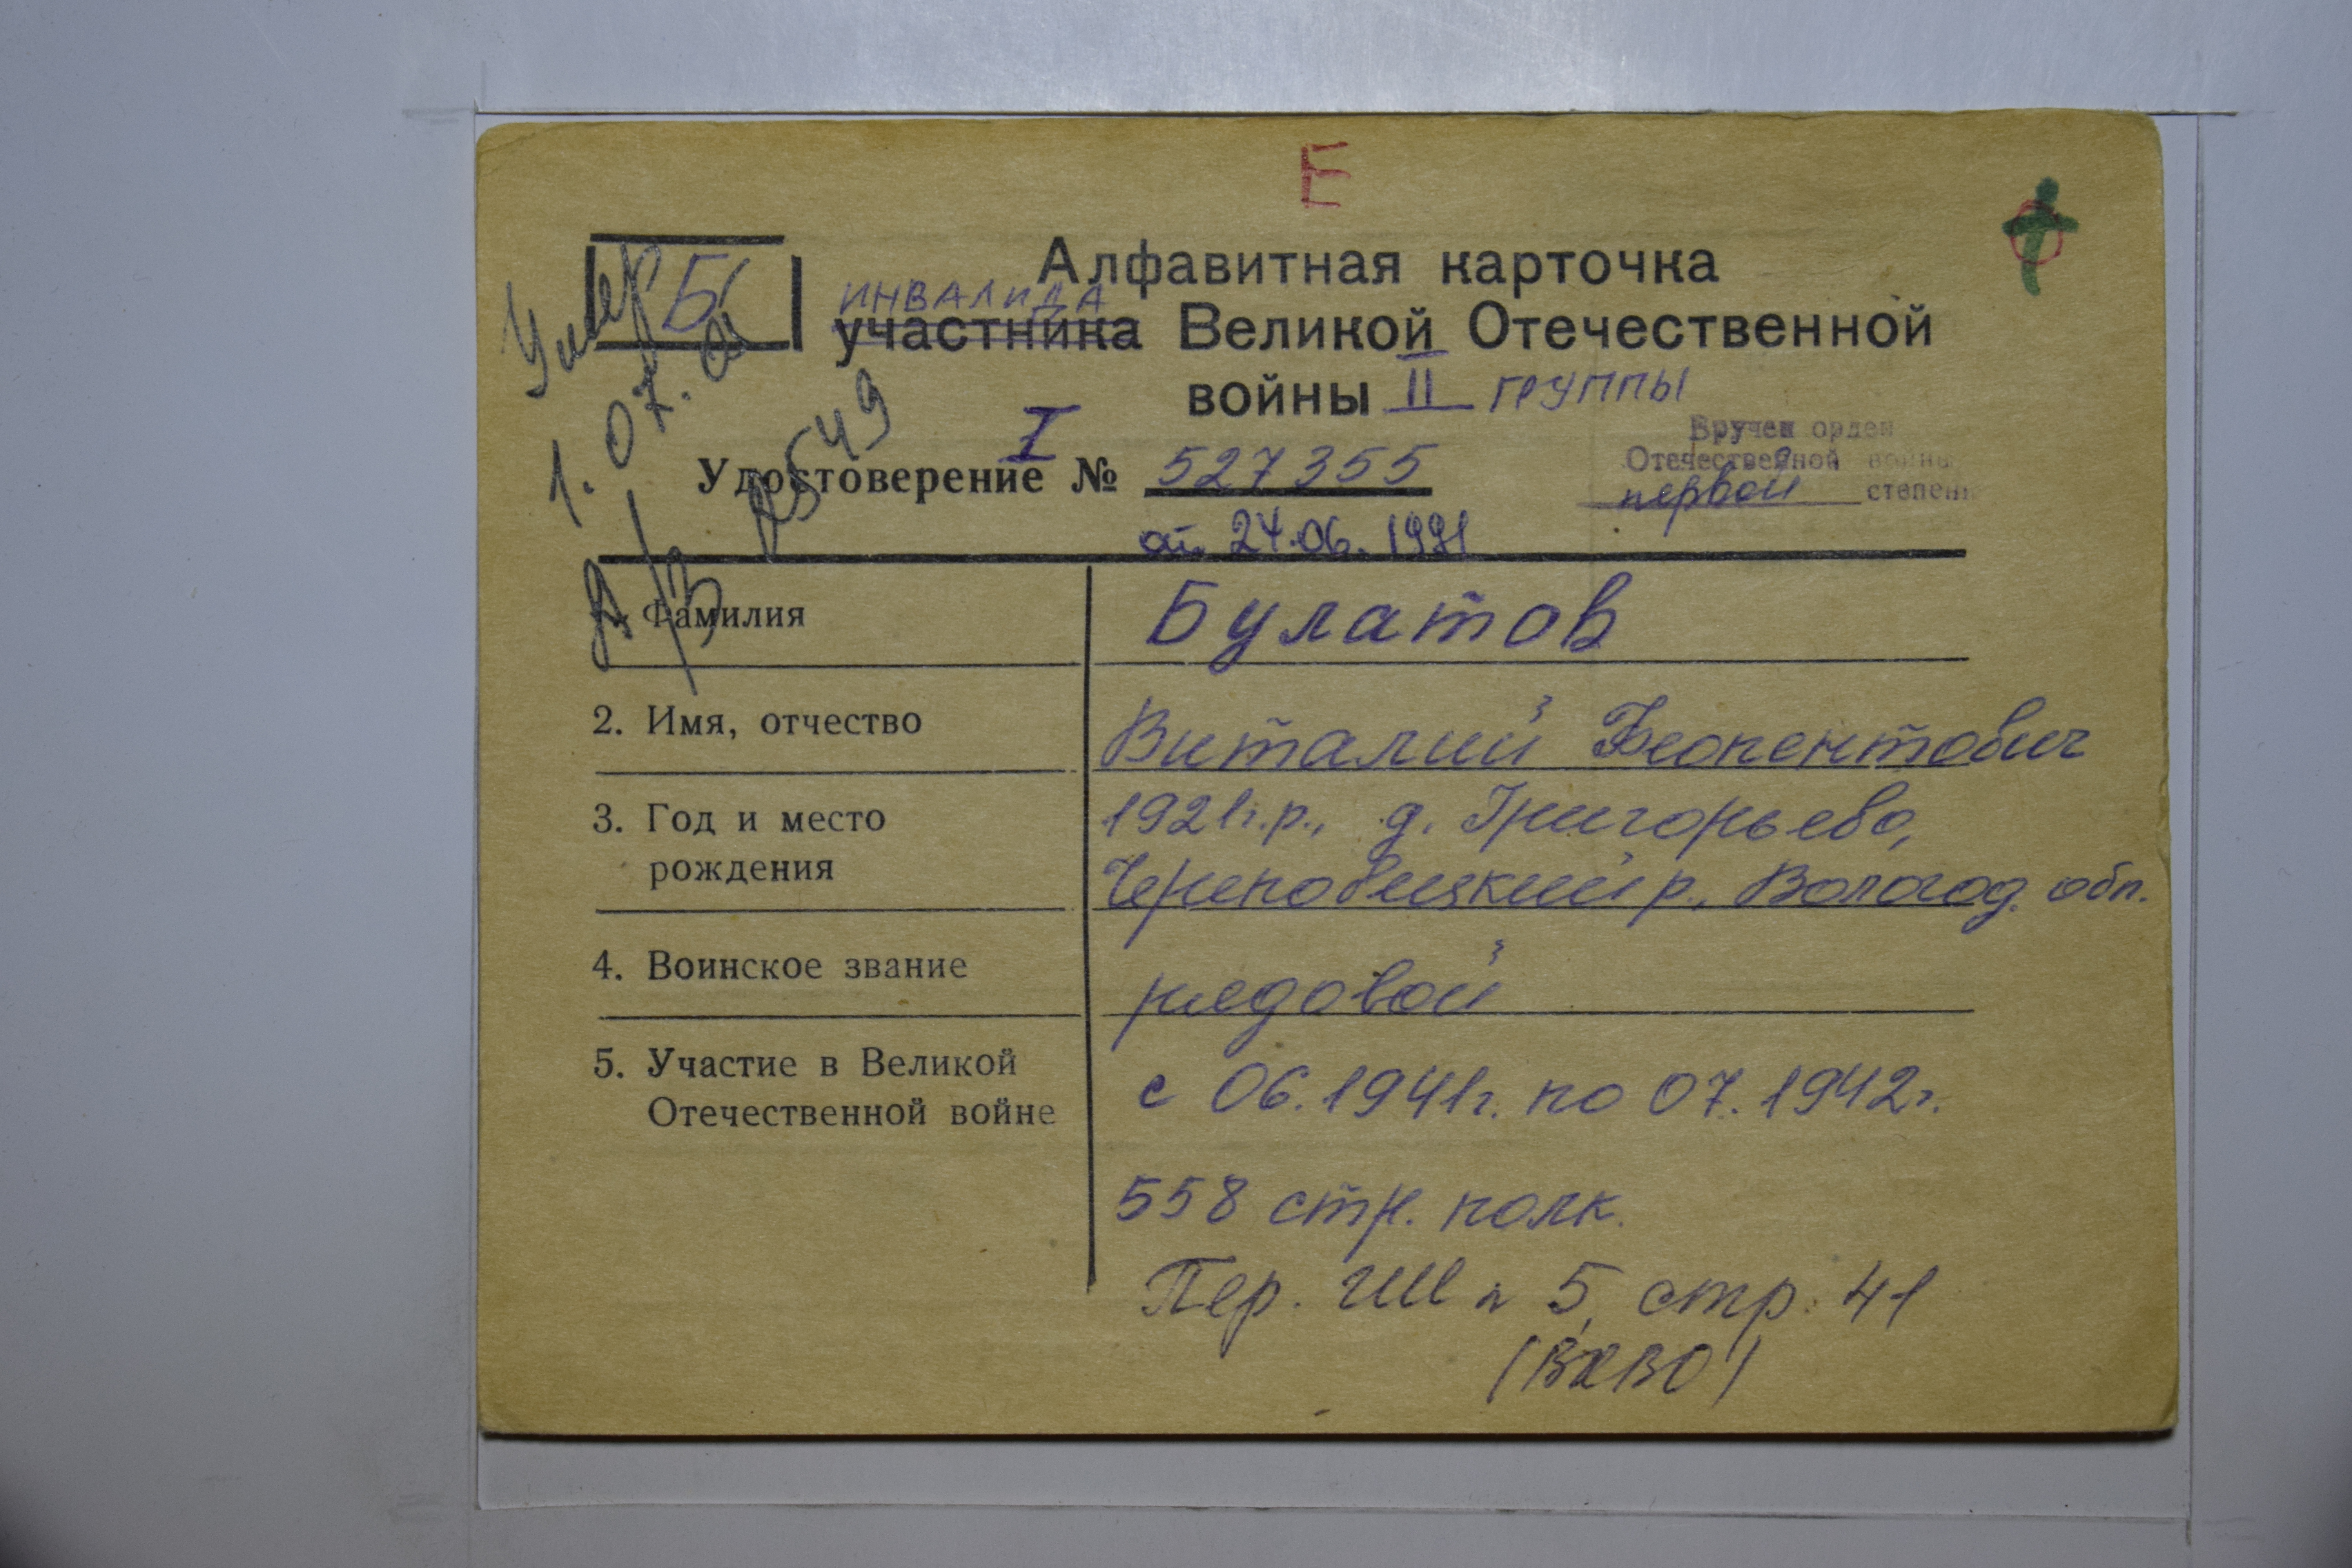 Е
Б
Умер
1.07.01
А/З № 549
Алфавитная карточка
ИНВАЛИДА
участника Великой Отечественной
войны II ГРУППЫ
Вручен орден
Отечественной войны
первой степени
I
Удостоверение № 527355
от 24.06.1991
1. Фамилия Булатов
2. Имя, отчество Виталий Феопентович
3. Год и место 1921г.р., д. Григорьево,
рождения Череповецкий р., Волог. обл.
4. Воинское звание рядовой
5. Участие в Великой с 06.1941г. по 07.1942г.
Отечественной войне
558 стр. полк.
Пер. 5, стр. 41